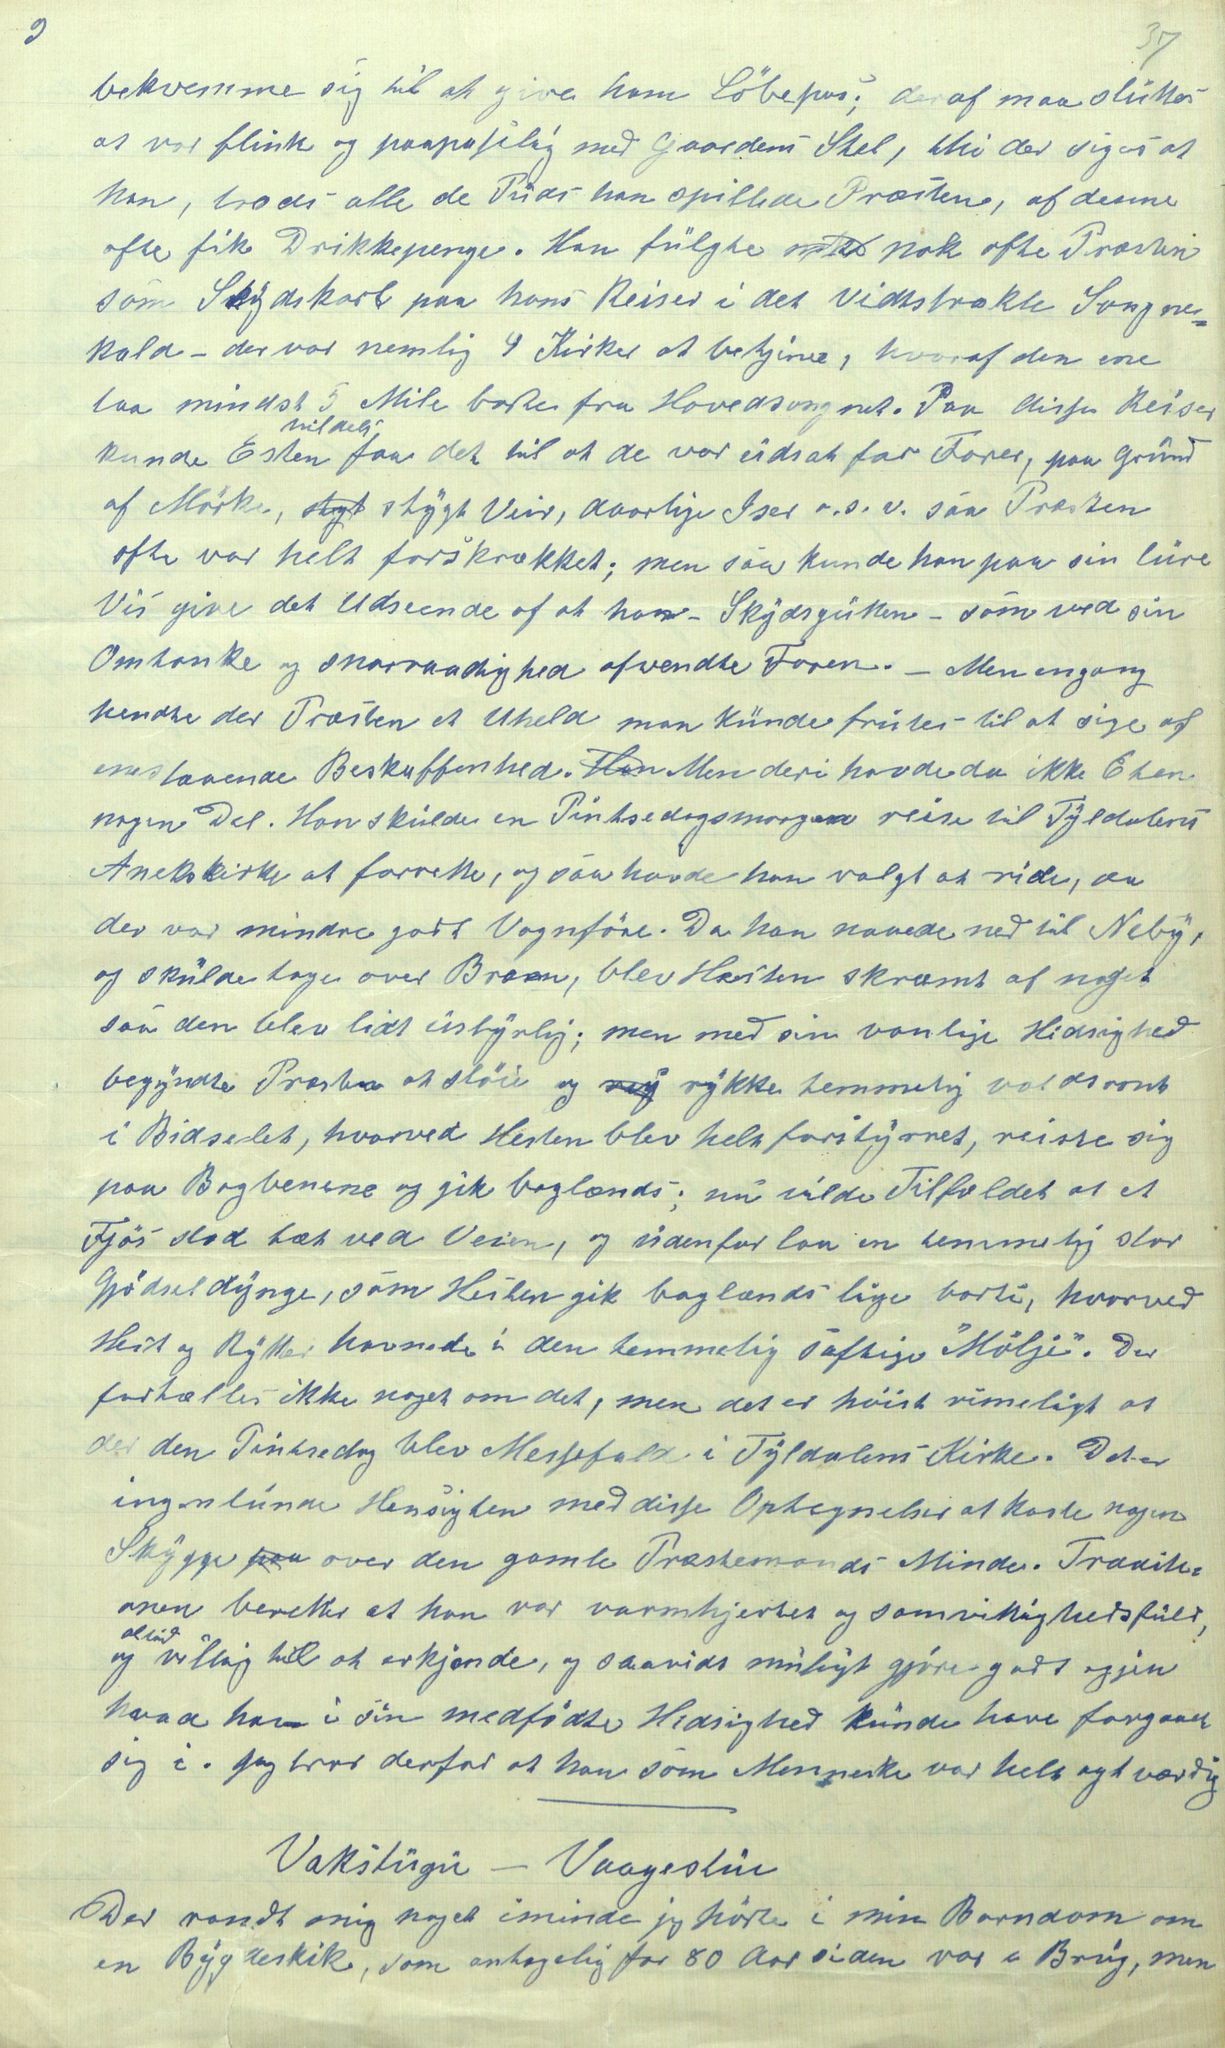 9
37
bekvemme sig til at give ham Löbepas; deraf maa sluttes
at var flink og paapaselig med Gaardens Stel, thi der siges at
han, trods alle de Puds han spillede Præsten, af denne
ofte fik Drikkepenge. Han fulgte nok ofte Præsten
som Skydskarl paa hans Reiser i det vidtstrakte Sogne=
kald - der var nemlig 4 Kirker at betjene, hvoraf den ene
laa mindst 5 Mile borte fra Hovedsognet. Paa disse Reiser
kunde Esten tildels faa det til at de var udsat for Farer, paa Grund
af Mörke, stygt stygt Veir, daarlige Iser o.s.v. saa Præsten
ofte var helt forskrækket; men saa kunde han paa sin lure
Vis give det Udseende af at han - Skydsgutten - som ved sin
Omtanke og snarraadighed afvendte Faren. - Men engang
hendte der Præsten et Uheld man kunde fristes til at sige af
enestaaende Beskaffenhed. Han Men deri havde da ikke Esten
nogen Del. Han skulde en Pintsedagsmorgen reise til Tyldalens
Anekskirke at forrette, og saa havde han valgt at ride, da
der var mindre godt Vognföre. Da han naaede ned til Neby,
og skulde tage over Broen, blev Hesten skræmt af noget
saa den blev lidt ustyrlig; men med sin vanlige Hidsighed
begyndte Præsten at stöie og ryk rykke temmelig voldsomt
i Bidselet, hvorved Hesten blev helt forstyrret, reiste sig
paa Bagbenene og gik baglænds; nu vilde Tilfældet at et
Fjös stod tæt ved Veien, og udenfor laa en temmelig stor
Gjödseldynge, som Hesten gik baglænds lige borti, hvorved
Hest og Rytter havnede i den temmelig saftige "Mölje". Der
fortælles ikke noget om det, men det er höist rimeligt at
der den Pintsedag blev Messefald i Tyldalens Kirke. Det er
ingenlunde Hensigten med disse Optegnelser at kaste nogen
Skygge paa over den gamle Præstemands Minde. Traditi=
onen beretter at han var varmhjertet og samvittighedsfuld,
og altid villig til at erkjende, og saavidt muligt gjöre godt igjen
hvad han i sin medfödte Hidsighed kunde have forgaaet
sig i. Jeg tror derfor at han som Menneske var helt agtværdig
Vakstugu - Vaagestue
Der randt mig noget iminde jeg hörte i min Barndom om
en Bygdeskik, som antagelig for 80 Aar siden var i Brug, men